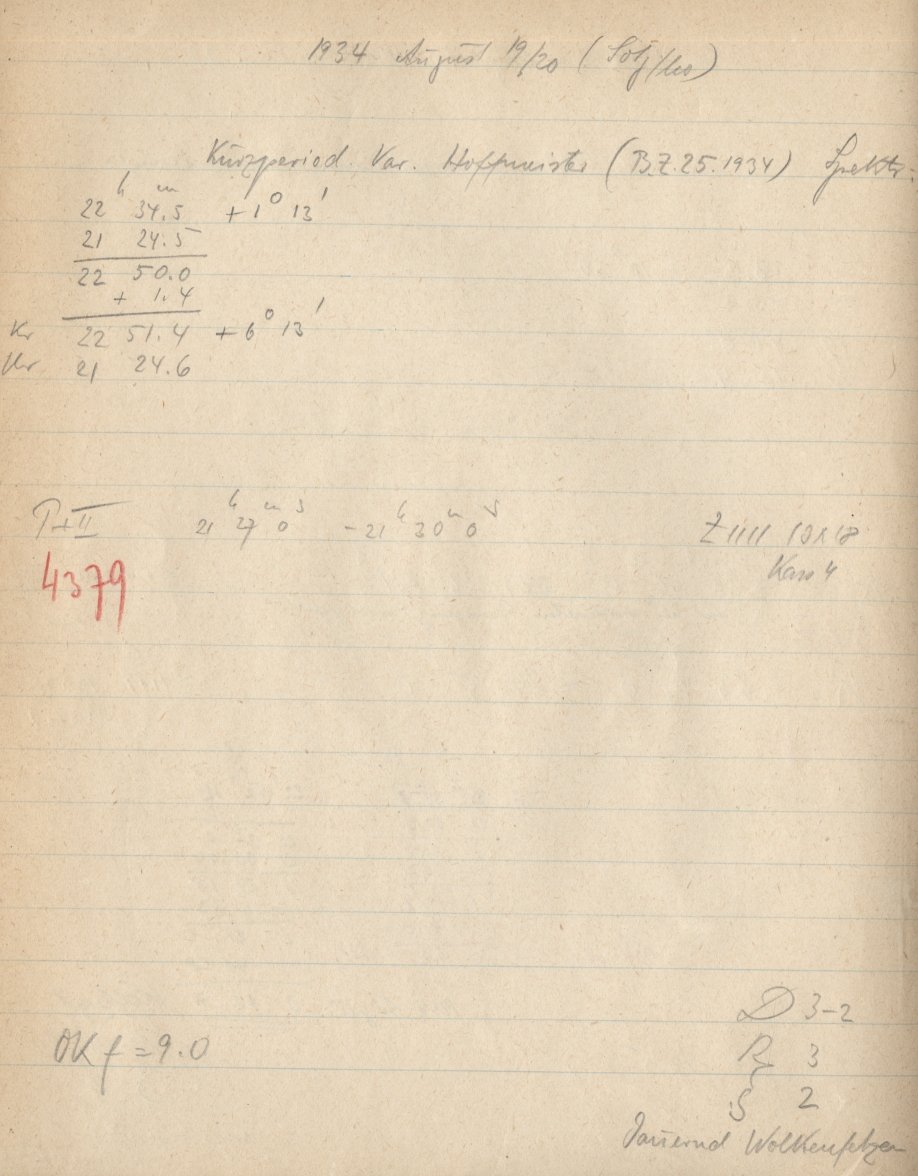 1934 August 19/20 (
Kurzperiod. Var. Hoffmeister (B.Z.25.1934) Spektr.
22h 34.5m +1° 13'
21 24.5
22 50.0
+ 1.4
Kr 22 51.4 +6° 13'
Uhr 21 24.6
P+II 21h 27m 0s - 21h 30m 0s Z IIII
Kass 4
4379
D 3-2
OK f = 9.0
R 3
S 2
Dauernd Wolkenfetzen